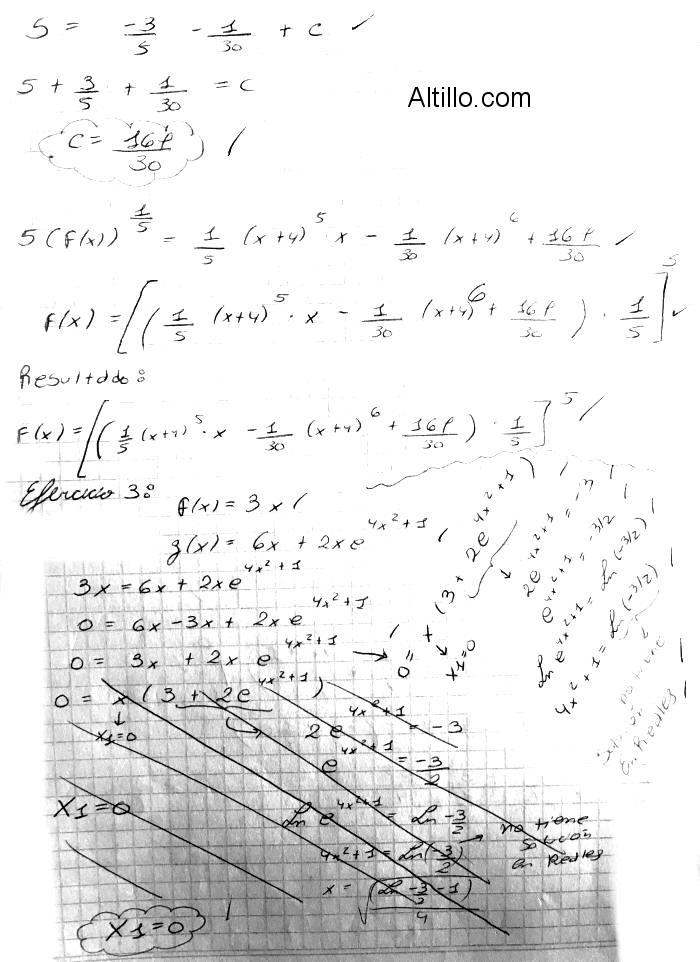 5 = -3/5 - 1/30 + C ✓
5 + 3/5 + 1/30 = C
Altillo.com
C = 169/30 /
5 (F(x))^(1/5) = 1/5 (x+4)^5 x - 1/30 (x+4)^6 + 169/30 /
F(x) = [(1/5 (x+4)^5 · x - 1/30 (x+4)^6 + 169/30) · 1/5]^5 ✓
Resultado:
F(x) = [(1/5 (x+4)^5 · x - 1/30 (x+4)^6 + 169/30) · 1/5]^5 /
Ejercicio 3:
f(x) = 3x /
g(x) = 6x + 2xe^(4x²+1) /
3x = 6x + 2xe^(4x²+1)
0 = 6x - 3x + 2xe^(4x²+1)
0 = 3x + 2xe^(4x²+1) →
0 = x (3 + 2e^(4x²+1))
↓
x1=0
2e^(4x²+1) = -3
e^(4x²+1) = -3/2
Ln e^(4x²+1) = Ln -3/2
4x²+1 = Ln(-3/2) → no tiene
solución
en Reales
x = √((Ln -3/2 - 1)/4)
X1=0
X1=0 /
0 = x (3 + 2e^(4x²+1)) /
x1=0
2e^(4x²+1) = -3 /
e^(4x²+1) = -3/2 /
Ln e^(4x²+1) = Ln(-3/2) /
4x²+1 = Ln(-3/2) /
no tiene
solución
en Reales /